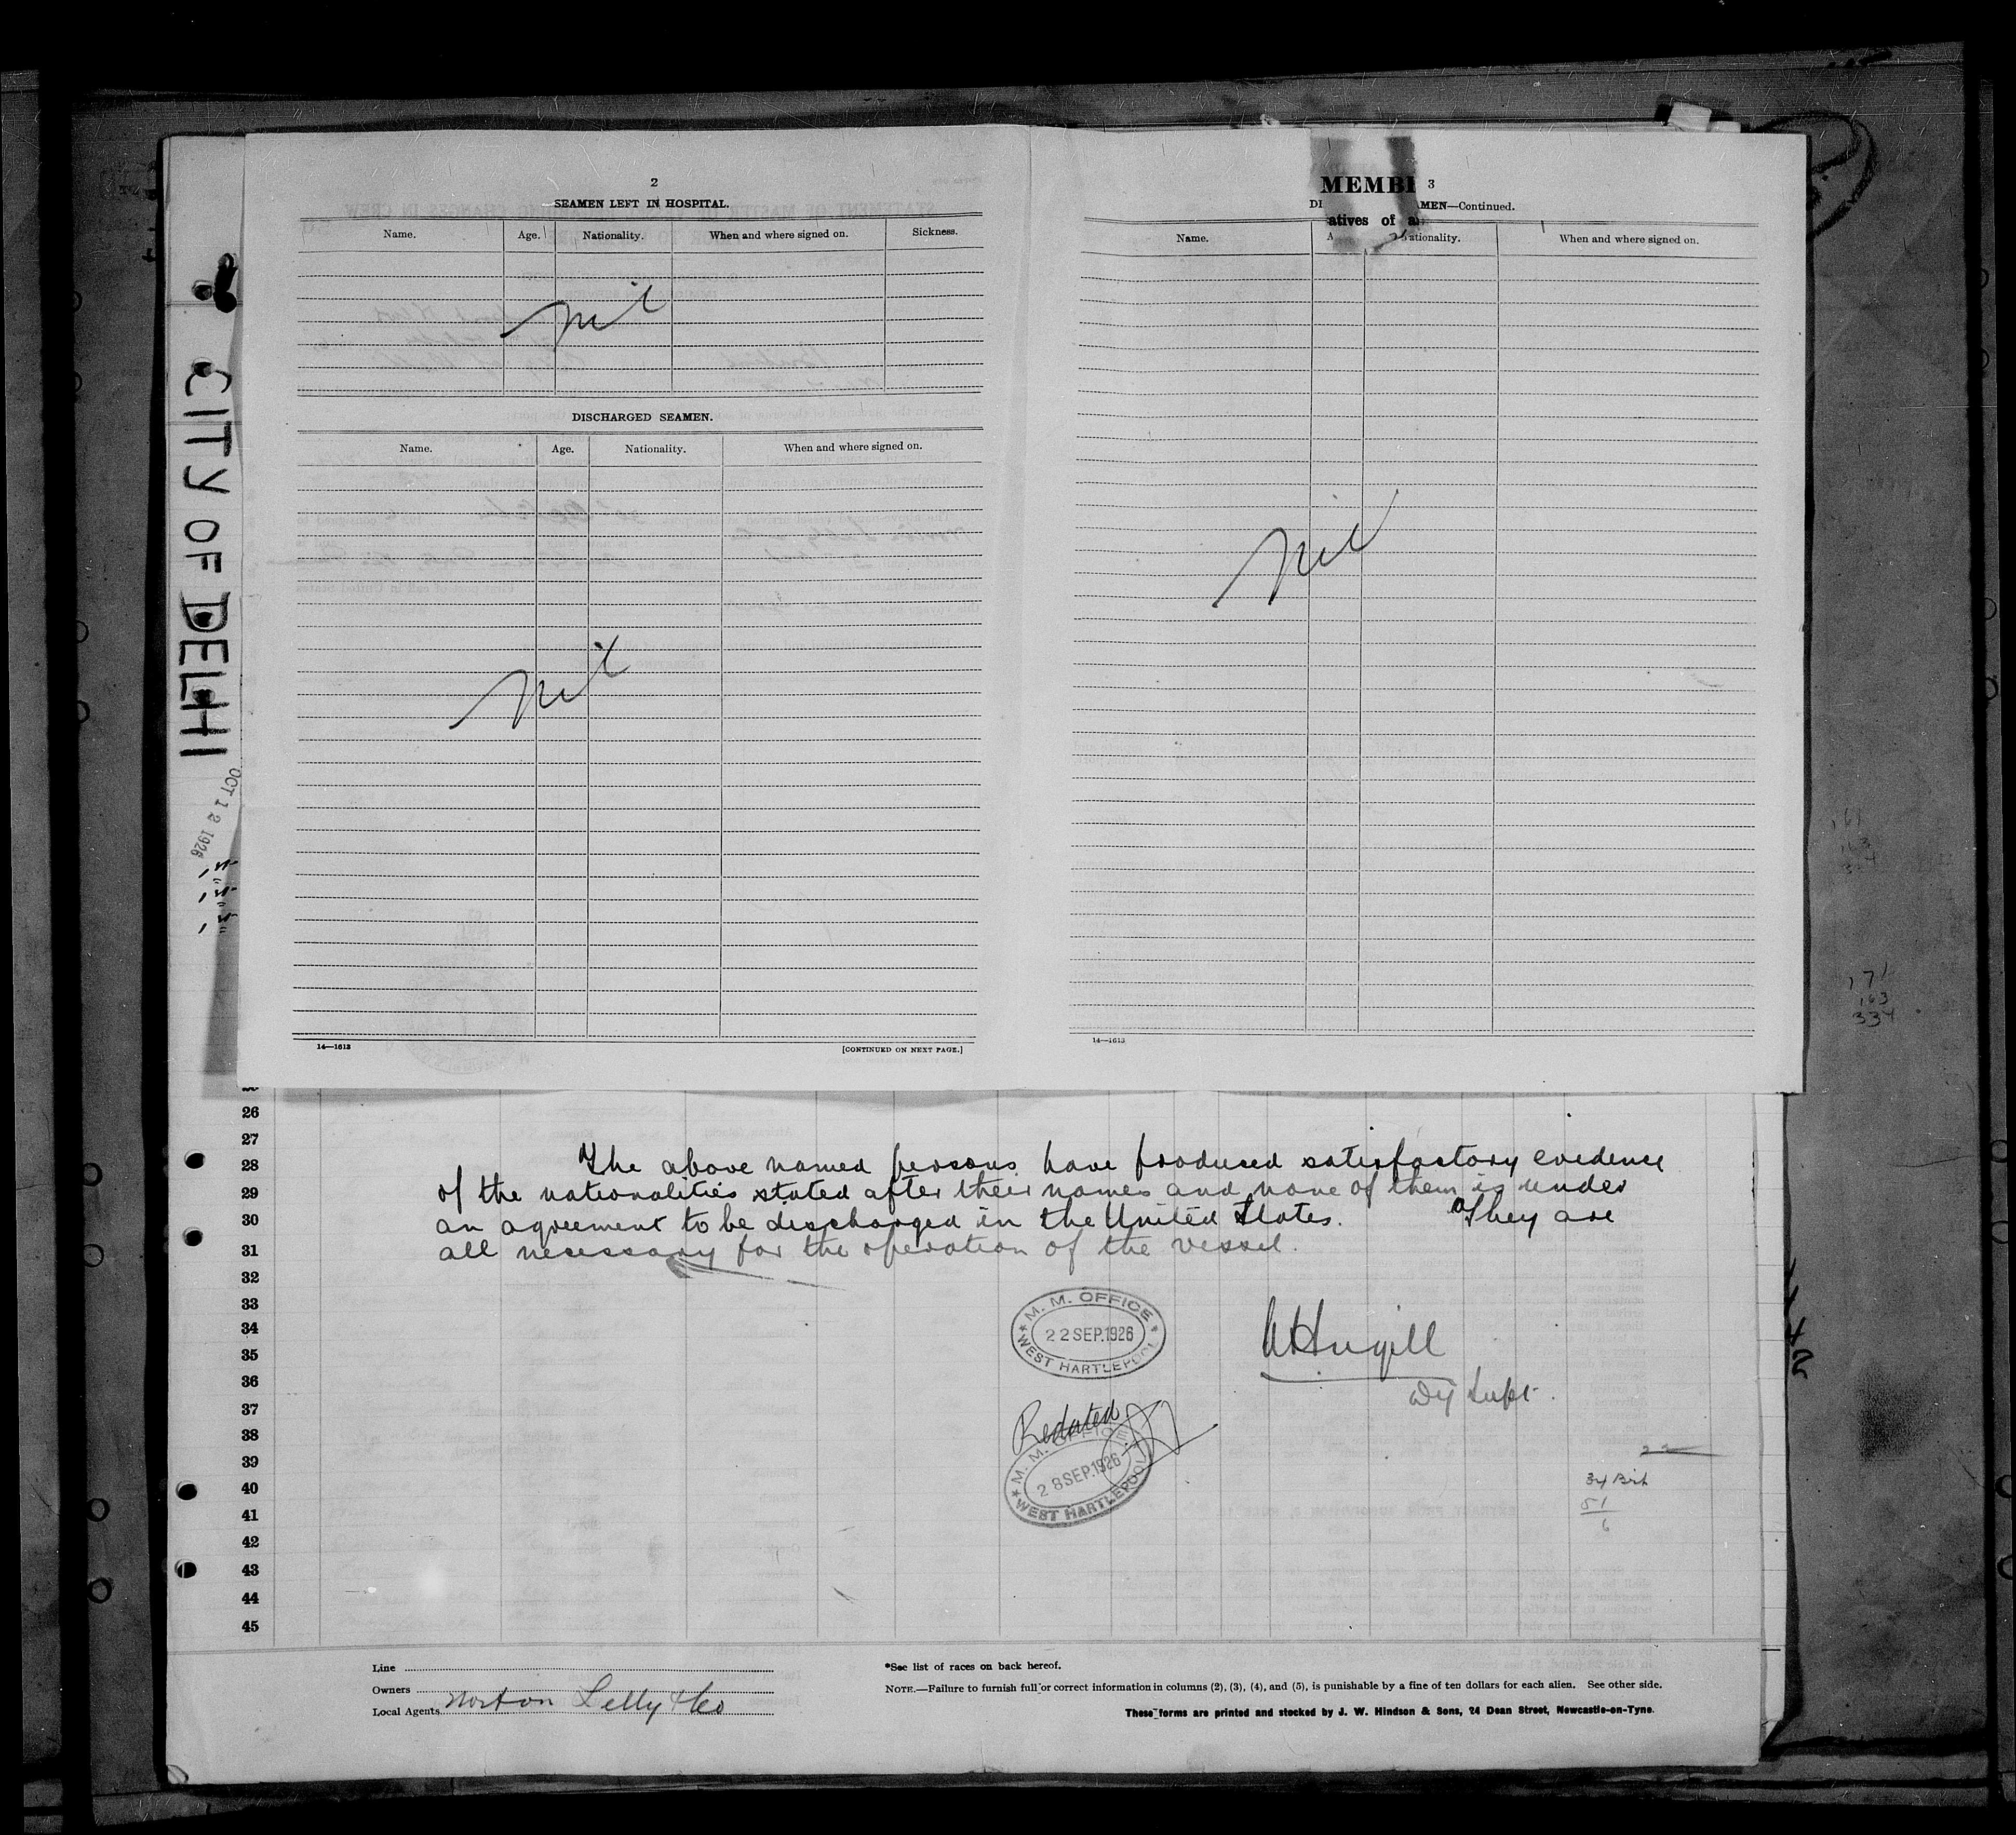 CITY OF DELHI
OCT 12 1926
2
SEAMEN LEFT IN HOSPITAL.
Name. Age. Nationality. When and where signed on. Sickness.
nil
DISCHARGED SEAMEN.
Name. Age. Nationality. When and where signed on.
nil
14—1613 [CONTINUED ON NEXT PAGE.]
MEMBE 3
DI MEN—Continued.
atives of a
Name. A ationality. When and where signed on.
nil
14—1613
161
163
171
163
334
26
27
28 The above named persons have produced satisfactory evidence
29 of the nationalities stated after their names and none of them is under
30 an agreement to be discharged in the United States. They are
31 all necessary for the operation of the vessel.
32
33
34
35
36
37
38
39
40
41
42
43
44
45
M. M. OFFICE
22 SEP. 1926
WEST HARTLEPOOL
WHugill
Dy Supt.
Redated
M. M. OFFICE
28 SEP. 1926
WEST HARTLEPOOL
34 Brit
51
6
Line
Owners
Local Agents Norton Lilly & Co
*See list of races on back hereof.
NOTE.—Failure to furnish full or correct information in columns (2), (3), (4), and (5), is punishable by a fine of ten dollars for each alien. See other side.
These forms are printed and stocked by J. W. Hindson & Sons, 24 Dean Street, Newcastle-on-Tyne.